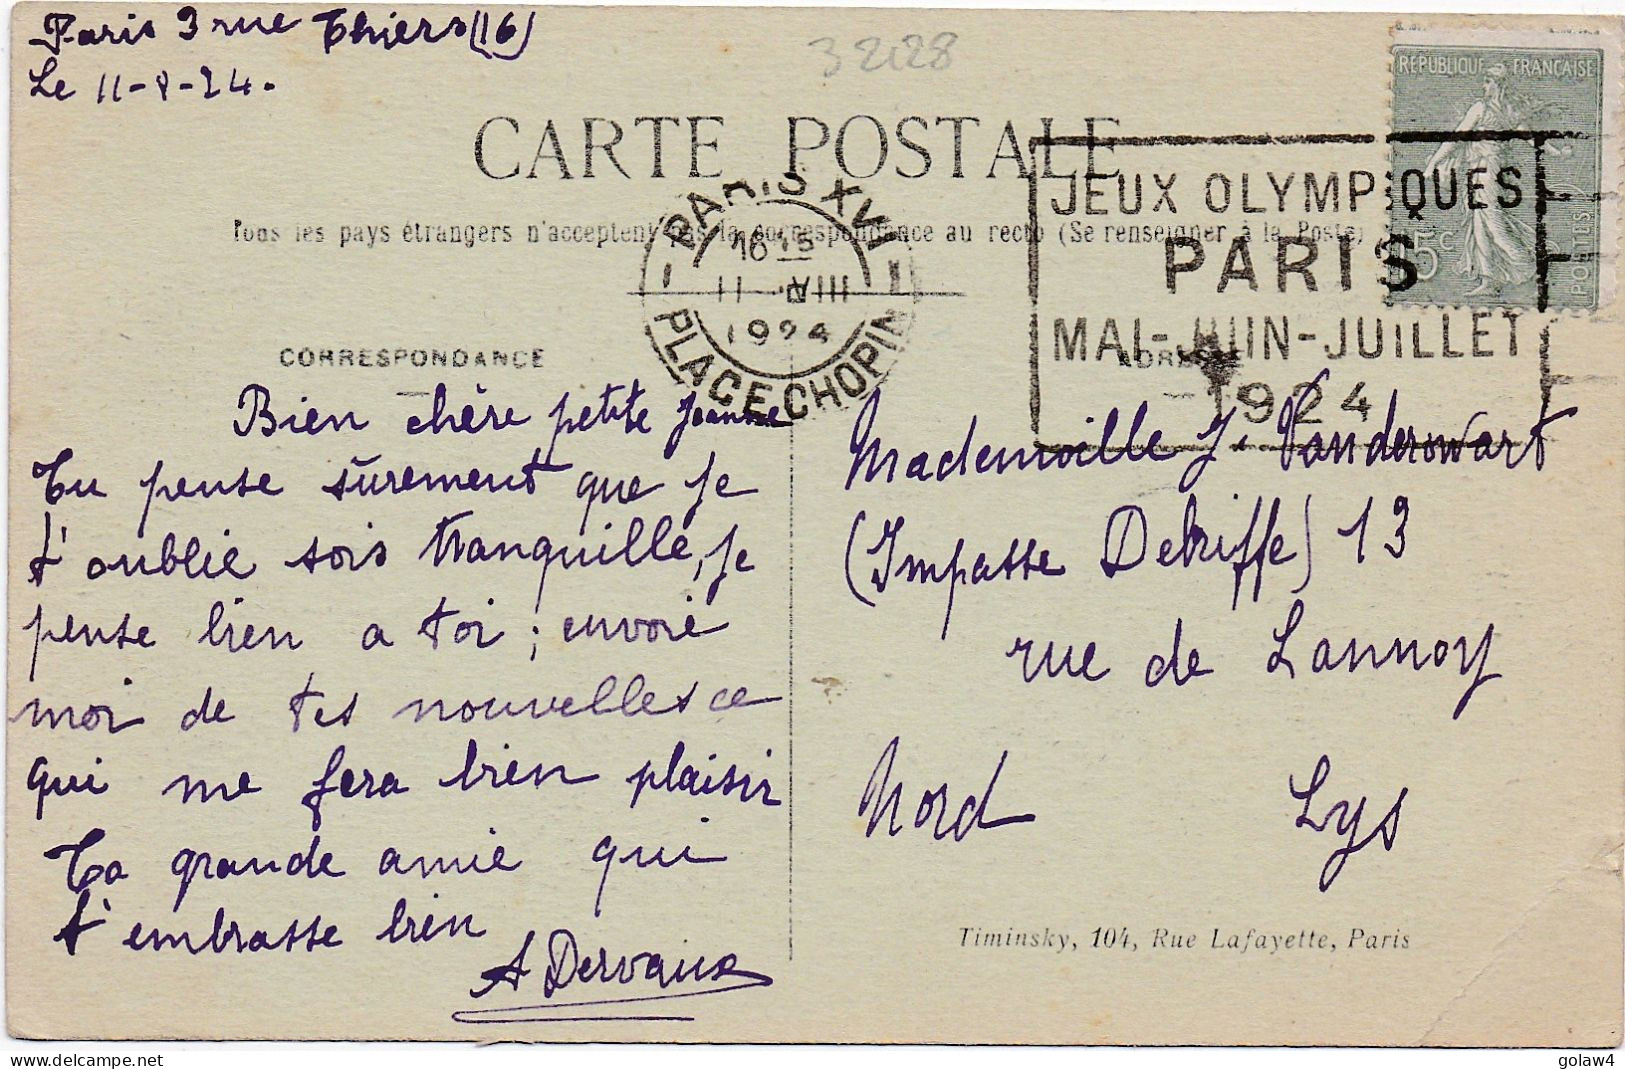 Paris 3 rue Thiers (16)
Le 11-8-24.
32128
RÉPUBLIQUE FRANÇAISE
15c
POSTES
CARTE POSTALE
Tous les pays étrangers n'acceptent pas la correspondance au recto (Se renseigner à la Poste)
PARIS XVI
16 15
11 VIII
1924
PLACE CHOPIN
JEUX OLYMPIQUES
PARIS
MAI-JUIN-JUILLET
1924
CORRESPONDANCE
ADRESSE
Bien chère petite Jeanne
Tu pense sûrement que je
t'oublie sois tranquille, je
pense bien a toi ; envoie
moi de tes nouvelles ce
qui me fera bien plaisir
Ta grande amie qui
t'embrasse bien
A Dervaux
Mademoille J. Vanderwart
(Impasse Debriffe) 13
rue de Lannoy
Nord Lys
Timinsky, 104, Rue Lafayette, Paris
delcampe.net
golaw4